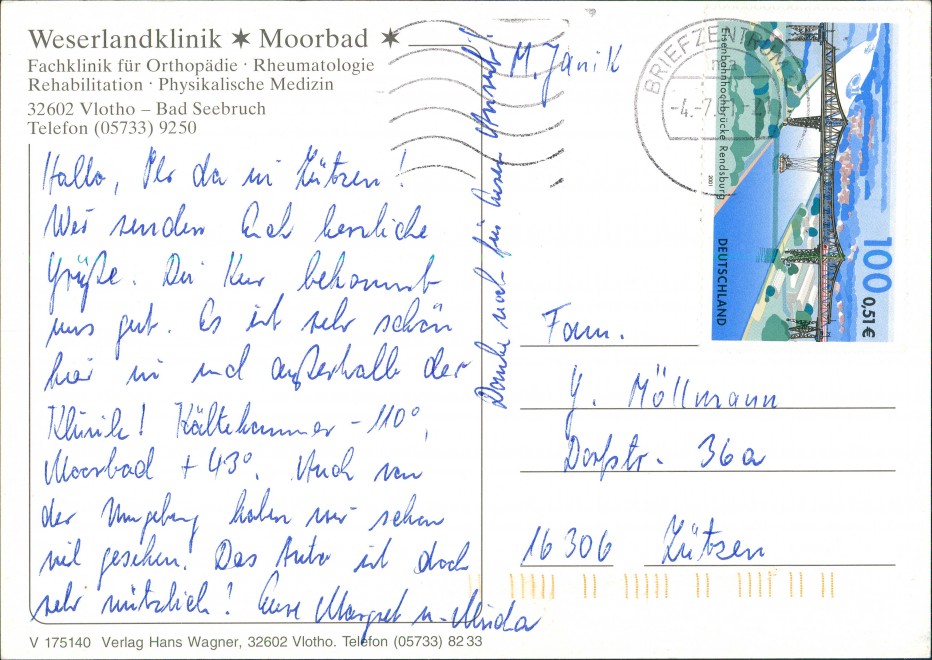 Weserlandklinik ✶ Moorbad ✶
Fachklinik für Orthopädie · Rheumatologie
Rehabilitation · Physikalische Medizin
32602 Vlotho – Bad Seebruch
Telefon (05733) 9250
Hallo, Ihr da in Zützen!
Wir senden Euch herzliche
Grüße. Die Kur bekommt
uns gut. Es ist sehr schön
hier in und außerhalb der
Klinik! Kältekammer -110°,
Moorbad + 43°. Auch von
der Umgebung haben wir schon
viel gesehen! Das Auto ist doch
sehr nützlich! Eure Margret u.
Danke noch für
M. Janik
BRIEFZENTRUM
-4.-7.
Eisenbahnhochbrücke Rendsburg
2001
DEUTSCHLAND
100
0,51 €
Fam.
G. Möllmann
Dorfstr. 36a
16306 Zützen
V 175140 Verlag Hans Wagner, 32602 Vlotho. Telefon (05733) 82 33